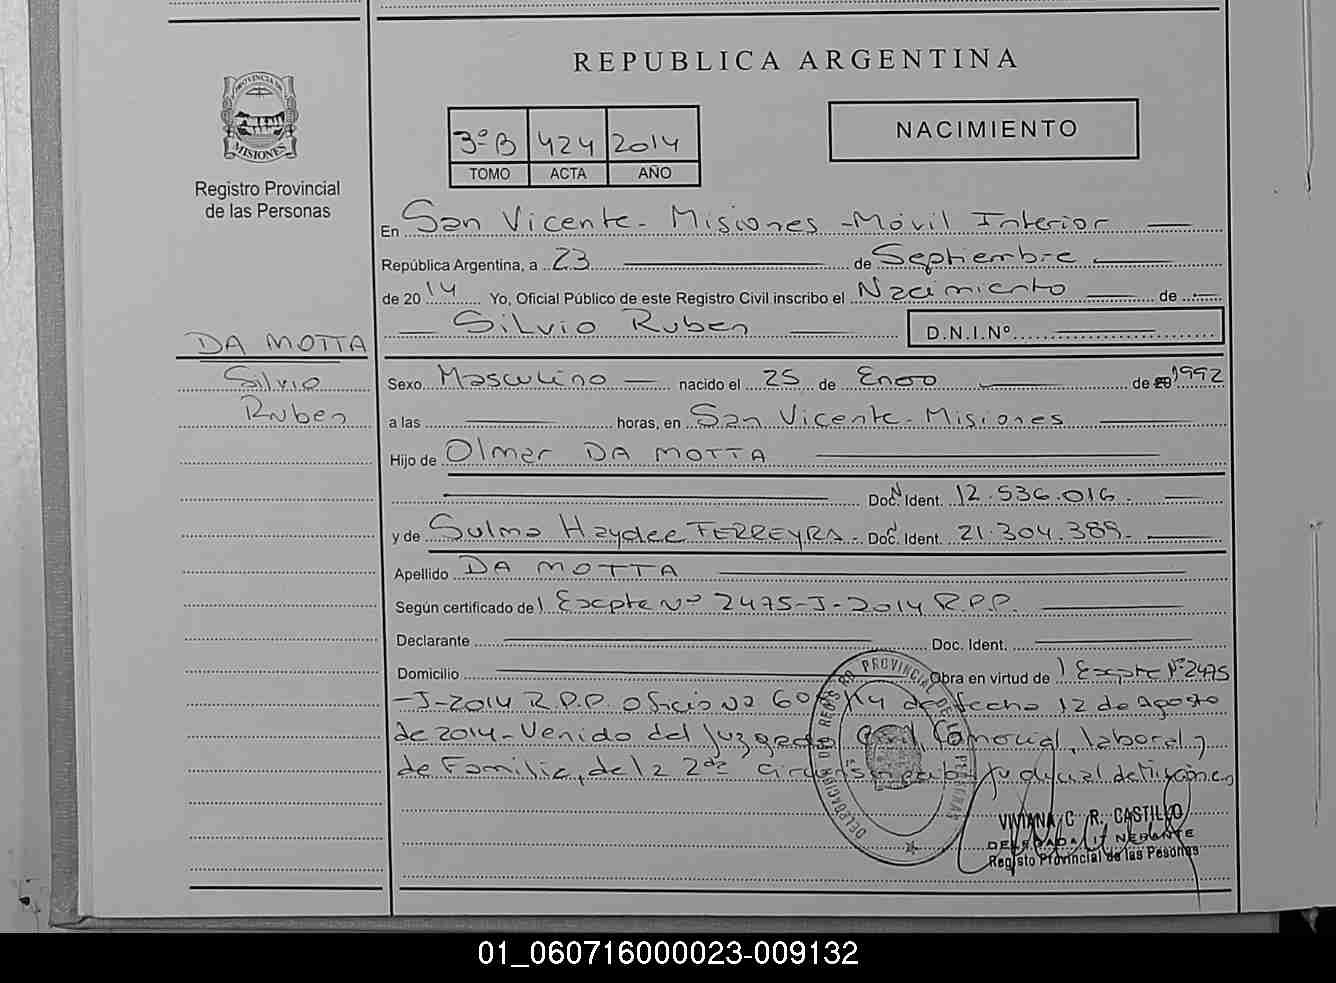 REPUBLICA ARGENTINA
PROVINCIA DE
MISIONES
Registro Provincial
de las Personas
3º B 424 2014
TOMO ACTA AÑO
NACIMIENTO
En San Vicente - Misiones - Móvil Interior
República Argentina, a 23 de Septiembre
de 2014 Yo, Oficial Público de este Registro Civil inscribo el Nacimiento de
Silvio Ruben D.N.I.Nº
DA MOTTA
Silvio
Ruben
Sexo Masculino nacido el 25 de Enero de 1992
a las horas, en San Vicente - Misiones
Hijo de Olmar DA MOTTA
Doc. Ident. 12.536.016.
y de Sulma Haydee FERREYRA - Doc. Ident. 21.304.389.
Apellido DA MOTTA
Según certificado de Expte Nº 2475-J-2014 R.P.P.
Declarante Doc. Ident.
Domicilio Obra en virtud de Expte Nº 2475
-J-2014 R.P.P. Oficio Nº de fecha 12 de agosto
de 2014 - Venido del Juzgado Civil, Comercial, laboral y
de Familia, de la 2da Circunscripción Judicial de Misiones
DELEGACION DEL REGISTRO PROVINCIAL DE LAS PERSONAS
VIVIANA C. R. CASTILLO
DELEGADA ITINERANTE
Registo Provincial de las Pesonas
01_060716000023-009132